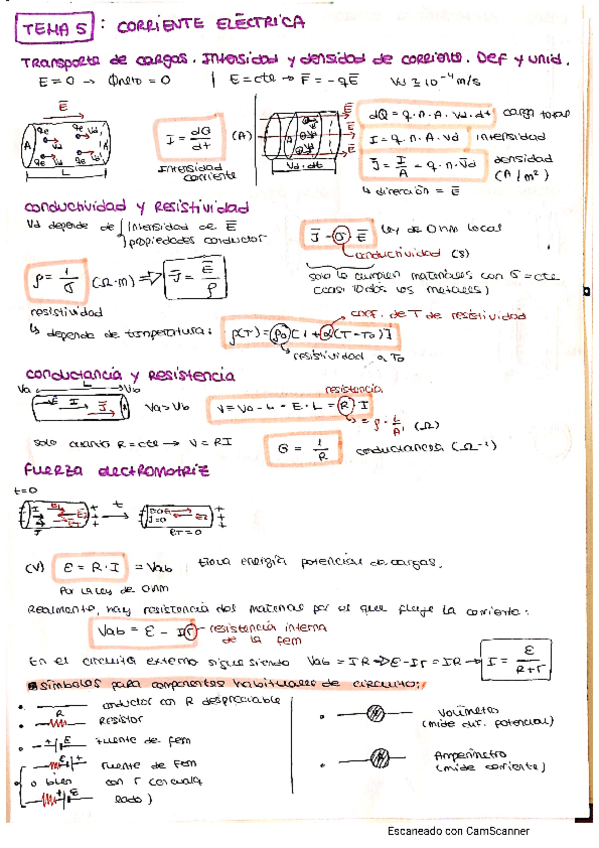 TEMA 5 : CORRIENTE ELÉCTRICA
Transporte de cargas. Intensidad y densidad de corriente. Def y unid.
E = 0 → Φneto = 0 | E = cte → F̄ = -qĒ Vd ≃ 10⁻⁴ m/s
Ē
A
L
I = dQ/dt (A)
Intensidad corriente
Vd · dt
dQ = q · n · A · Vd · dt carga total
I = q · n · A · Vd intensidad
J̄ = I/A = q · n · V̄d densidad (A/m²)
↳ dirección = Ē
Conductividad y Resistividad
Vd depende de intensidad de Ē
propiedades conductor
J̄ = σ Ē Ley de Ohm local
conductividad (S)
solo la cumplen materiales con σ = cte
(casi todos los metales)
ρ = 1/σ (Ω·m) ⇒ J̄ = Ē/ρ
resistividad
↳ depende de temperatura: ρ(T) = ρ0 [1 + α(T - T0)]
coef. de T de resistividad
resistividad a T0
Conductancia y Resistencia
Va L Vb
E I J̄ A Va > Vb
resistencia
V = Va - b = E · L = R · I
= ρ · L/A (Ω)
solo cuando R = cte → V = RI
G = 1/R conductancia (Ω⁻¹)
Fuerza electromotriz
t = 0
t
(V) Ɛ = R · I = Vab
energía potencial de cargas.
Por la ley de Ohm
Realmente, hay resistencia por el que fluye la corriente:
Vab = Ɛ - Ir resistencia interna de la fem
En el circuito externo sigue siendo Vab = IR ⇒ Ɛ - Ir = IR → I = Ɛ/(R + r)
Símbolos para componentes habituales de circuito:
conductor con R despreciable
R Resistor
Ɛ Fuente de fem
Ɛ Fuente de fem
o bien con r (en cualq
Ɛ lado)
Voltímetro
(mide dif. potencial)
Amperímetro
(mide corriente)
Escaneado con CamScanner